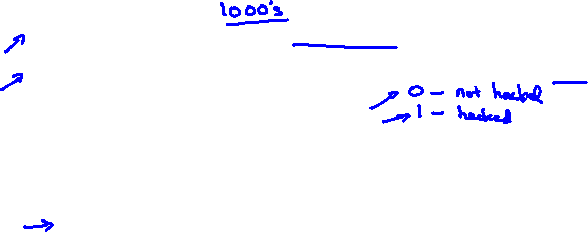 1000's
0 - not hacked
1 - hacked